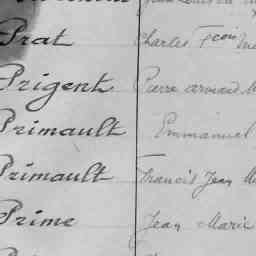 Prat Charles Fçois
Prigent Pierre armand M
Primault Emmanuel
Primault Francis Jean M
Prime Jean Marie